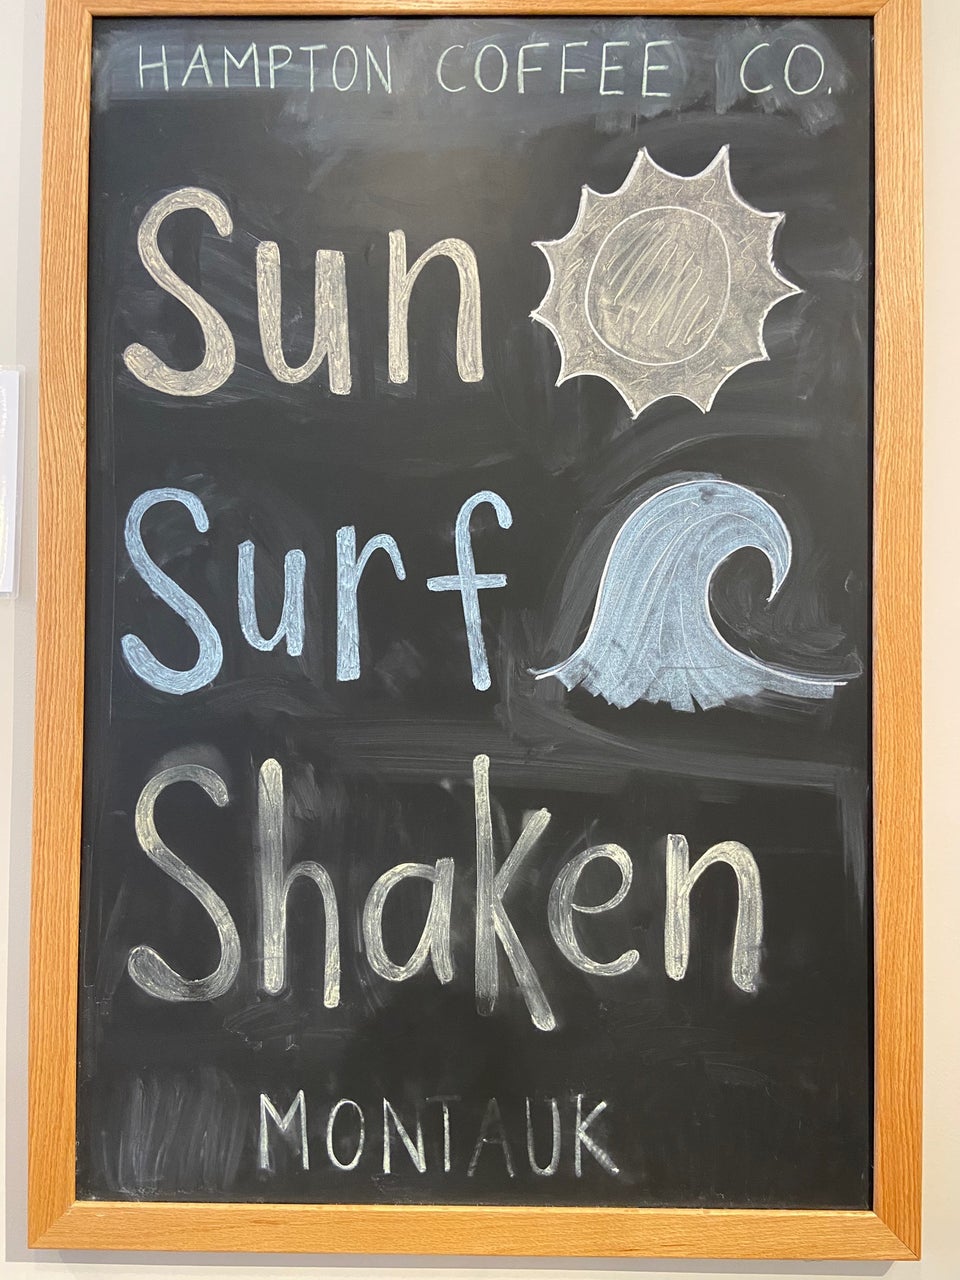 HAMPTON COFFEE CO.
Sun
Surf
Shaken
MONTAUK